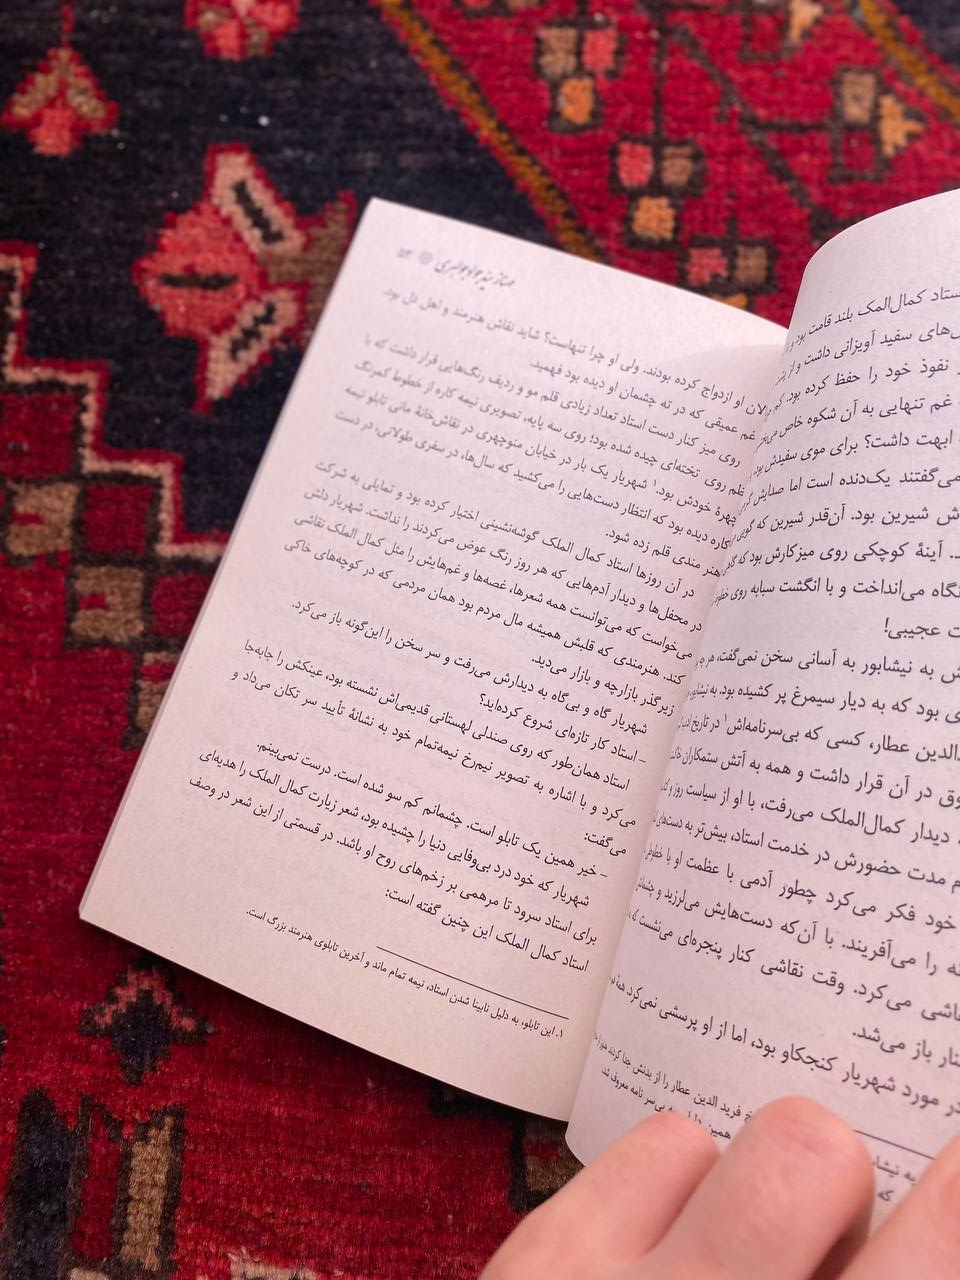 استاد کمال‌المک بلند قامت بود و
های سفید آویزانی داشت و از
نفوذ خود را حفظ کرده بود.
غم تنهایی به آن شکوه خاص
ابهت داشت؟ برای موی سفیدش
می‌گفتند یک‌دنده است اما صدایش
ش شیرین بود. آن‌قدر شیرین که گویی
آینهٔ کوچکی روی میزکارش بود که
نگاه می‌انداخت و با انگشت سبابه روی
ت عجیبی!
ش به نیشابور به آسانی سخن نمی‌گفت، هر چه
ی بود که به دیار سیمرغ پر کشیده بود. به نیشابور
الدین عطار، کسی که بی‌سرنامه‌اش۱ در تاریخ
وق در آن قرار داشت و همه به آتش ستمکاران
دیدار کمال‌الملک می‌رفت، با او از سیاست روز و
م مدت حضورش در خدمت استاد، بیش‌تر به دست‌های
خود فکر می‌کرد چطور آدمی با عظمت او با
نه را می‌آفریند. با آن‌که دست‌هایش می‌لرزید و
قاشی می‌کرد. وقت نقاشی کنار پنجره‌ای می‌نشست که
نار باز می‌شد.
در مورد شهریار کنجکاو بود، اما از او پرسشی نمی‌کرد. همهٔ
فرید الدین عطار را از بدنش جدا کردند
همین دلیل به بی‌سر نامه معروف شد.
به نیشابور
که
مهناز سیدجوادجواهری ۵۳
او ازدواج کرده بودند، ولی او چرا تنهاست؟ شاید نقاش هنرمند و اهل دل بود.
غم عمیقی که در ته چشمان او دیده بود فهمید.
روی میز کنار دست استاد تعداد زیادی قلم مو و ردیف رنگ‌هایی قرار داشت که با
نظم روی تخته‌ای چیده شده بود؛ روی سه پایه، تصویری نیمه کاره از خطوط کمرنگ
چهرهٔ خودش بود.۱ شهریار یک بار در خیابان منوچهری در نقاش‌خانهٔ مانی تابلو نیمه
کاره دیده بود که انتظار دست‌هایی را می‌کشید که سال‌ها، در سفری طولانی، در دست
هنر مندی قلم زده شود.
در آن روزها استاد کمال الملک گوشه‌نشینی اختیار کرده بود و تمایلی به شرکت
در محفل‌ها و دیدار آدم‌هایی که هر روز رنگ عوض می‌کردند را نداشت. شهریار دلش
می‌خواست که می‌توانست همه شعرها، غصه‌ها و غم‌هایش را مثل کمال الملک نقاشی
کند. هنرمندی که قلبش همیشه مال مردم بود همان مردمی که در کوچه‌های خاکی
زیرگذر بازارچه و بازار می‌دید.
شهریار گاه و بی‌گاه به دیدارش می‌رفت و سر سخن را این‌گونه باز می‌کرد.
– استاد کار تازه‌ای شروع کرده‌اید؟
استاد همان‌طور که روی صندلی لهستانی قدیمی‌اش نشسته بود، عینکش را جابه‌جا
می‌کرد و با اشاره به تصویر نیم‌رخ نیمه‌تمام خود به نشانهٔ تأیید سر تکان می‌داد و
می‌گفت:
– خیر همین یک تابلو است. چشمانم کم سو شده است. درست نمی‌بینم.
شهریار که خود درد بی‌وفایی دنیا را چشیده بود، شعر زیارت کمال‌الملک را هدیه‌ای
برای استاد سرود تا مرهمی بر زخم‌های روح او باشد. در قسمتی از این شعر در وصف
استاد کمال الملک این چنین گفته است:
۱. این تابلو، به دلیل نابینا شدن استاد، نیمه تمام ماند و آخرین تابلوی هنرمند بزرگ است.